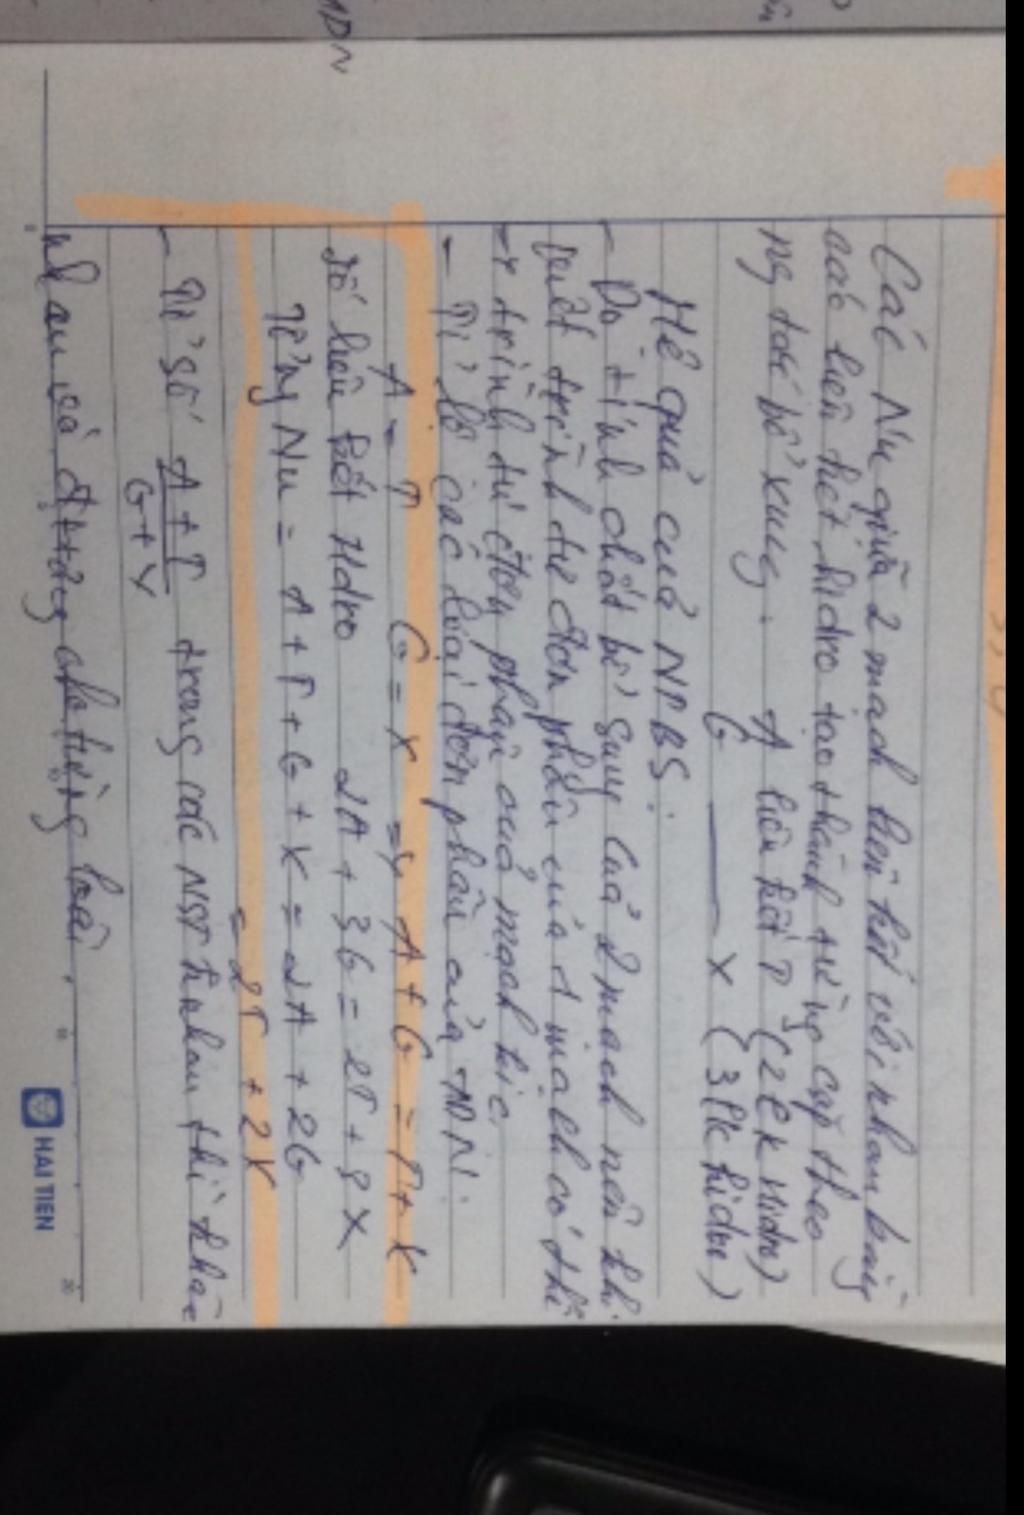 ADN
Các Nu giữa 2 mạch liên kết với nhau bằng
các liên kết hidro tạo thành từng cặp theo
ng tắc bổ xung. A liên kết T (2 lk Hidro)
G — X (3 lk hidro)
Hệ quả của NTBS:
- Do tính chất bổ sung của 2 mạch nên khi
biết trình tự đơn phân của 1 mạch có thể
trình tự đơn phân của mạch
- Tỉ lệ các loại đơn phân của ADN:
A = T G = X => A + G = T + X
số liên kết Hdro 2A + 3G = 2T + 3X
Tổng Nu = A + T + G + X = 2A + 2G
= 2T + 2X
- Tỉ số A + T / G + X trong các NST # nhau thì khác
nhau và đ trưng cho từng loài.
HAI TIEN